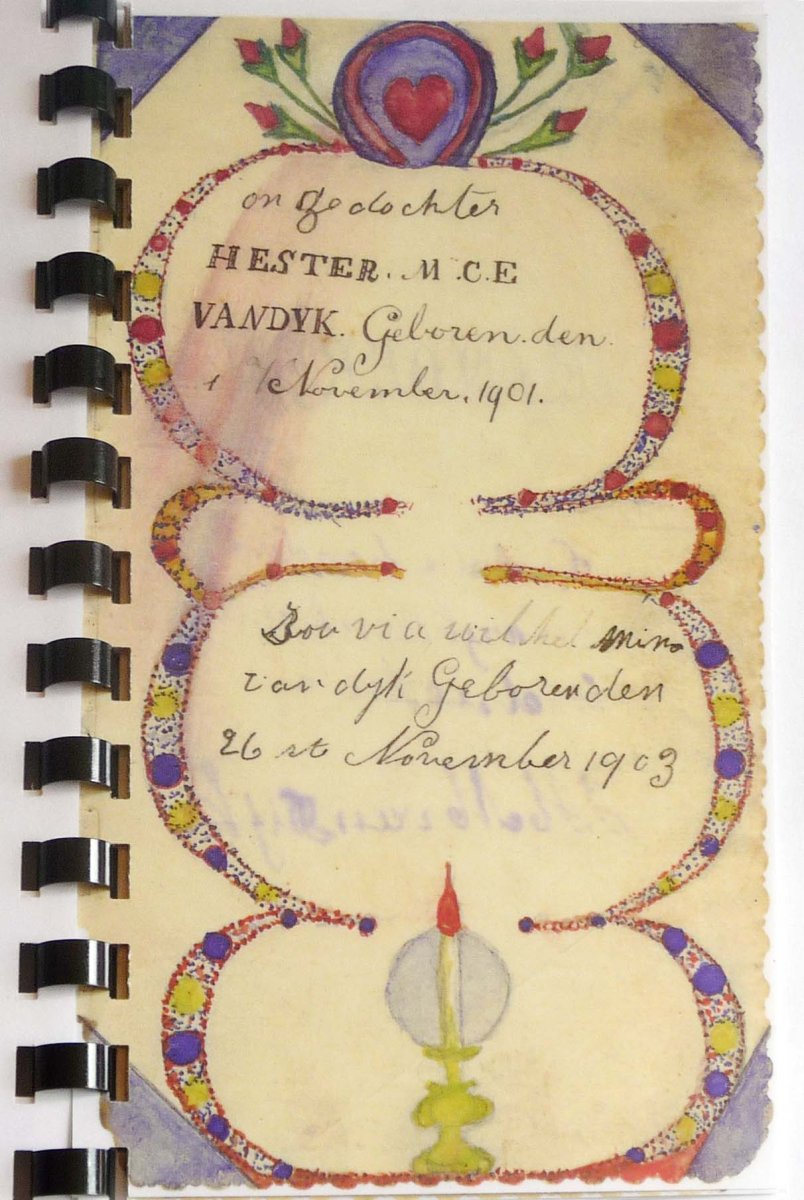 on ge dochter
HESTER. M.C.E
VANDYK. Geboren.den.
November.1901.
via wilhelmina
van dyk Geboren den
26 st November 1903